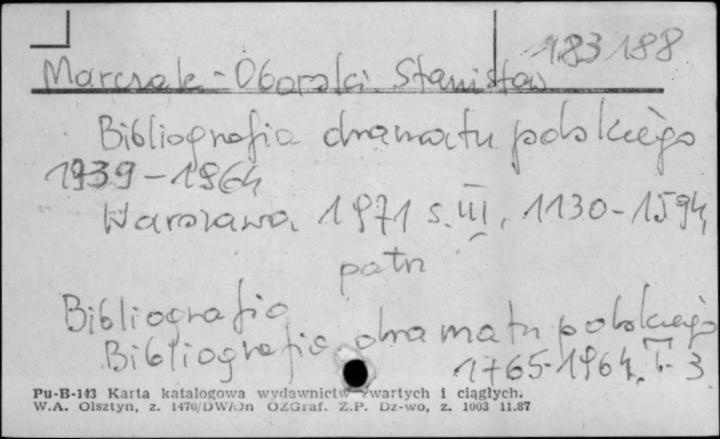 183188
Marczak-Oborski Stanisław
Bibliografia dramatu polskiego
1939-1964
Warszawa 1971 s. III, 1130-1594,
patrz
Bibliografia
Bibliografia dramatu polskiego
1765-1964. T. 3
Pu-B-143 Karta katalogowa wydawnictw zwartych i ciągłych.
W.A. Olsztyn, z. 1470/DW/Jn OZGraf. Z.P. Dz-wo, z. 1003 11.87